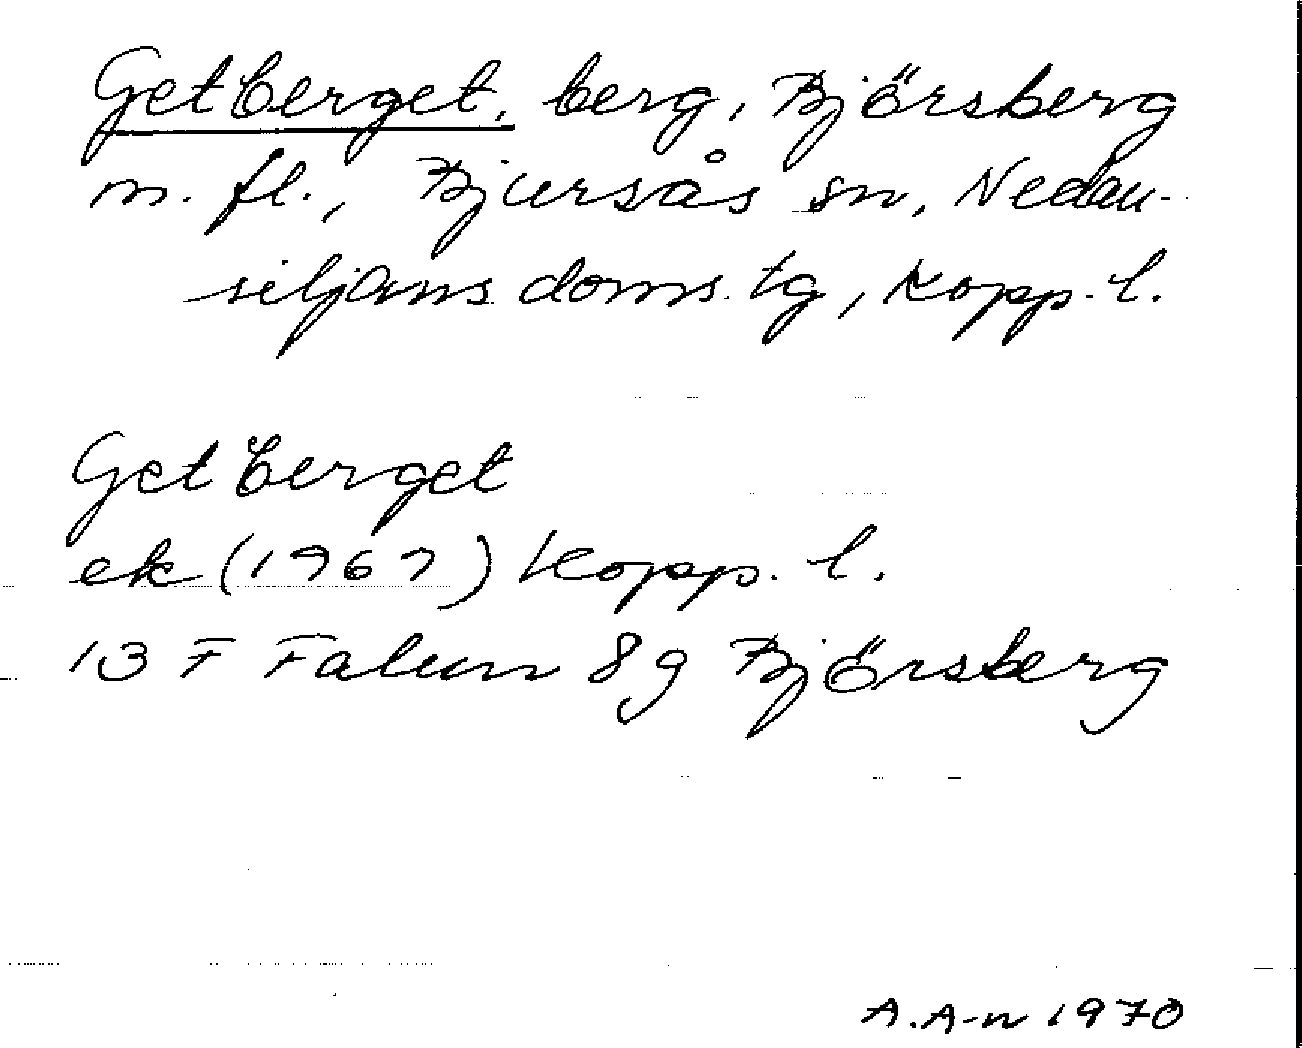 Getberget, berg, Bjørsberg
m. fl., Bjursås sn, Nedan-
siljans doms. tg, Kopp. l.
Getberget
ek (1967) Kopp. l.
13 F Falun 8g Björsberg
A.A-n 1970